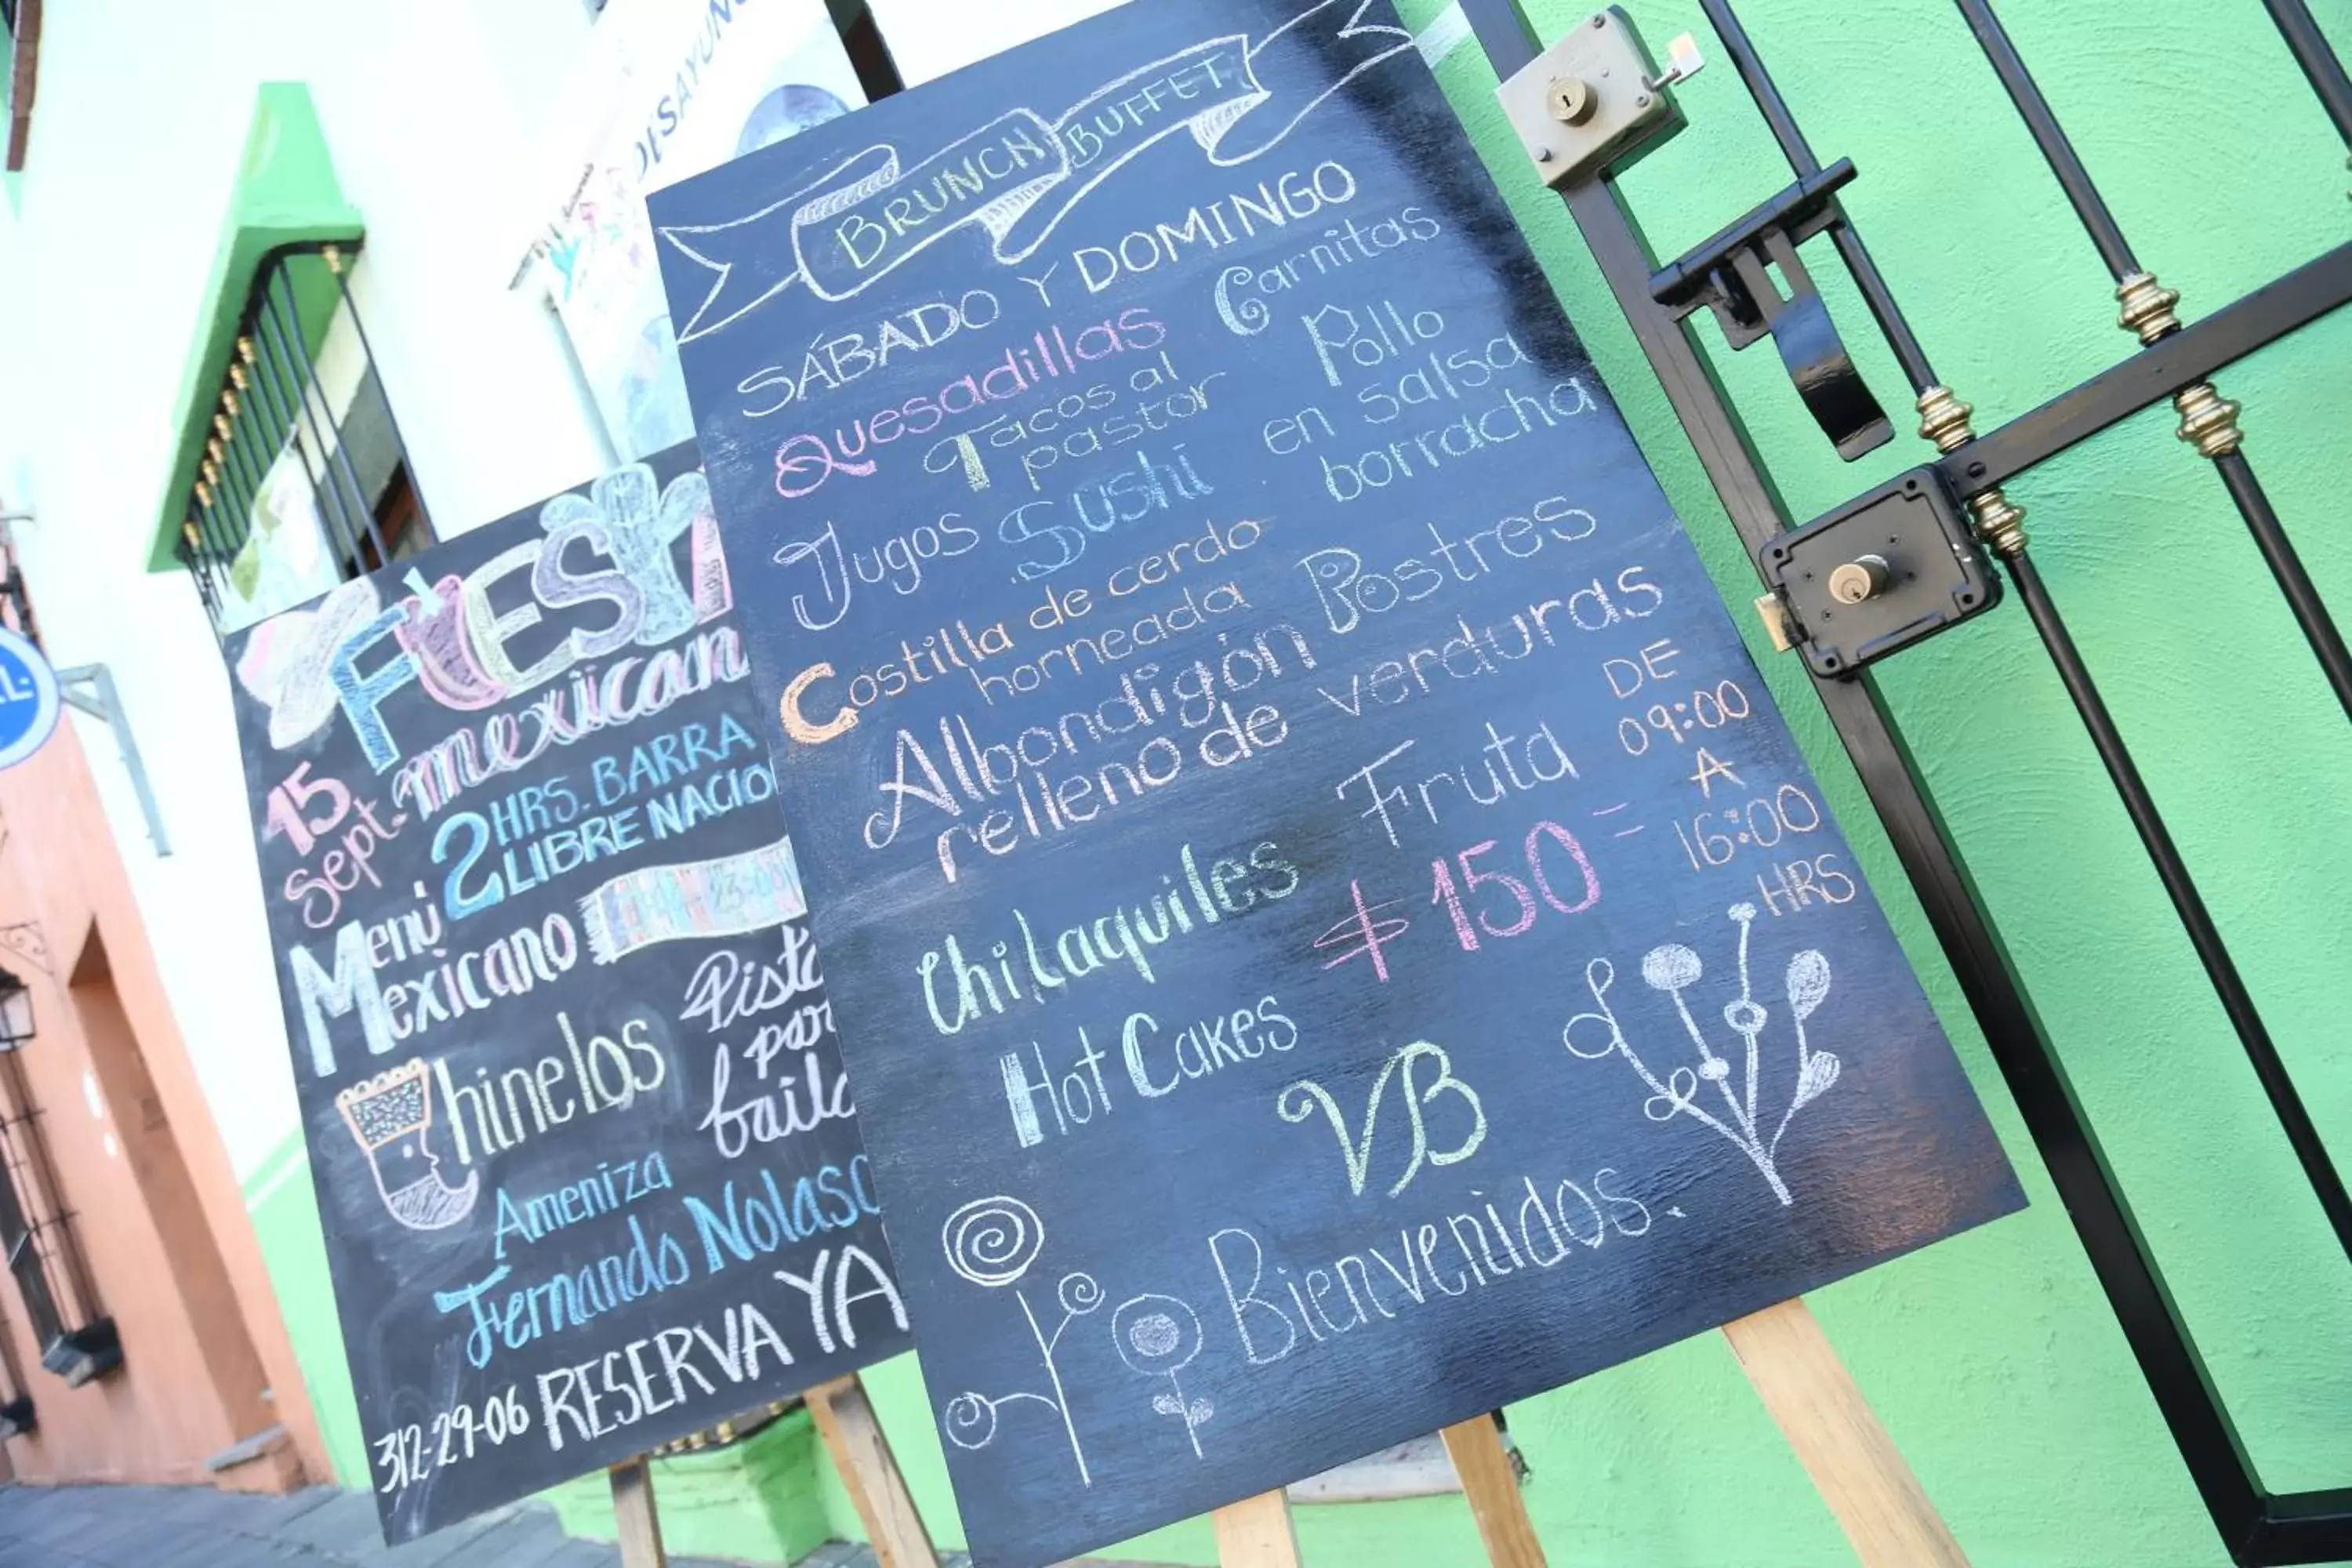 DESAYUN
L.
FIEST
mexican
15
Sept.
2 HRS. BARRA
LIBRE NACIO
Menú
Mexicano
Chinelos
Pista
par
baila
Ameniza
Fernando Nolasc
RESERVA YA
312-29-06
BRUNCH BUFFET
SÁBADO Y DOMINGO
Quesadillas
Carnitas
Tacos al
pastor
Pollo
en salsa
borracha
Jugos
Sushi
Costilla de cerdo
horneada
Postres
Albondigón
relleno de verduras
Fruta
DE
09:00
A
16:00
HRS
Chilaquiles
$150=
Hot Cakes
VB
Bienvenidos.